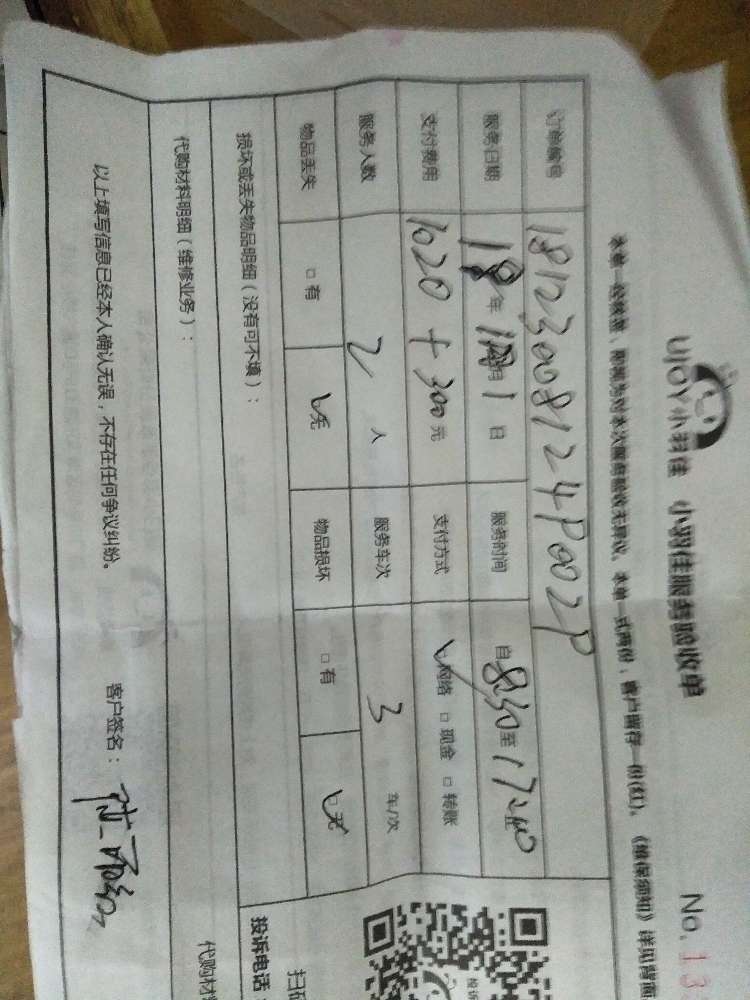 UJOY小羽佳 小羽佳服务验收单
No. 13
本单一经核签，即视为对本次服务验收无异议。本单一式两份，客户留存一份(红)。《维保须知》详见背面
订单编号 18123008124P002P
服务日期 18年 1月1日 服务时间 自8:30至17:40
支付费用 1020+300元 支付方式 □网络 □现金 □转账
服务人数 2人 服务车次 3 车/次
物品丢失 □有 □无 物品损坏 □有 □无
损坏或丢失物品明细（没有可不填）：
代购材料明细（维修业务）：
以上填写信息已经本人确认无误，不存在任何争议纠纷。 客户签名：
扫码
投诉电话：
代购材